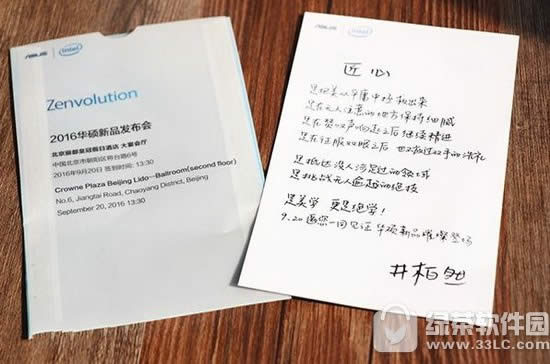 ASUS
intel
Zenvolution
2016华硕新品发布会
北京丽都皇冠假日酒店 大宴会厅
中国北京市朝阳区将台路6号
2016年9月20日 签到时间: 13:30
Crowne Plaza Beijing Lido—Ballroom(second floor)
No.6, Jiangtai Road, Chaoyang District, Beijing
September 20, 2016 13:30
ASUS
intel
匠心
是把美从平庸中拯救出来
是在无人注意的地方保持细腻
是在赞叹声响起之后继续精进
是在征服双眼之后 也不放过双手的洗礼
是抵达没人涉足过的领域
是挑战无人逾越的绝技
是美学 更是绝学!
9.20邀您一同见证华硕新品璀璨登场
井柏然
绿茶软件园
www.33LC.com